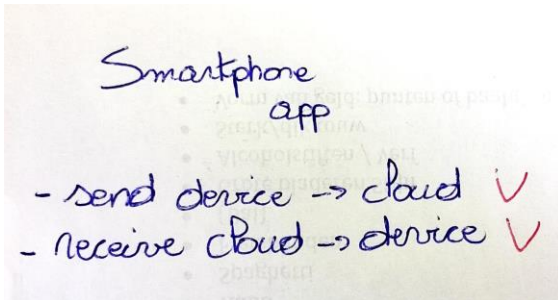 Smartphone
app
- send device -> cloud ✓
- receive cloud -> device ✓